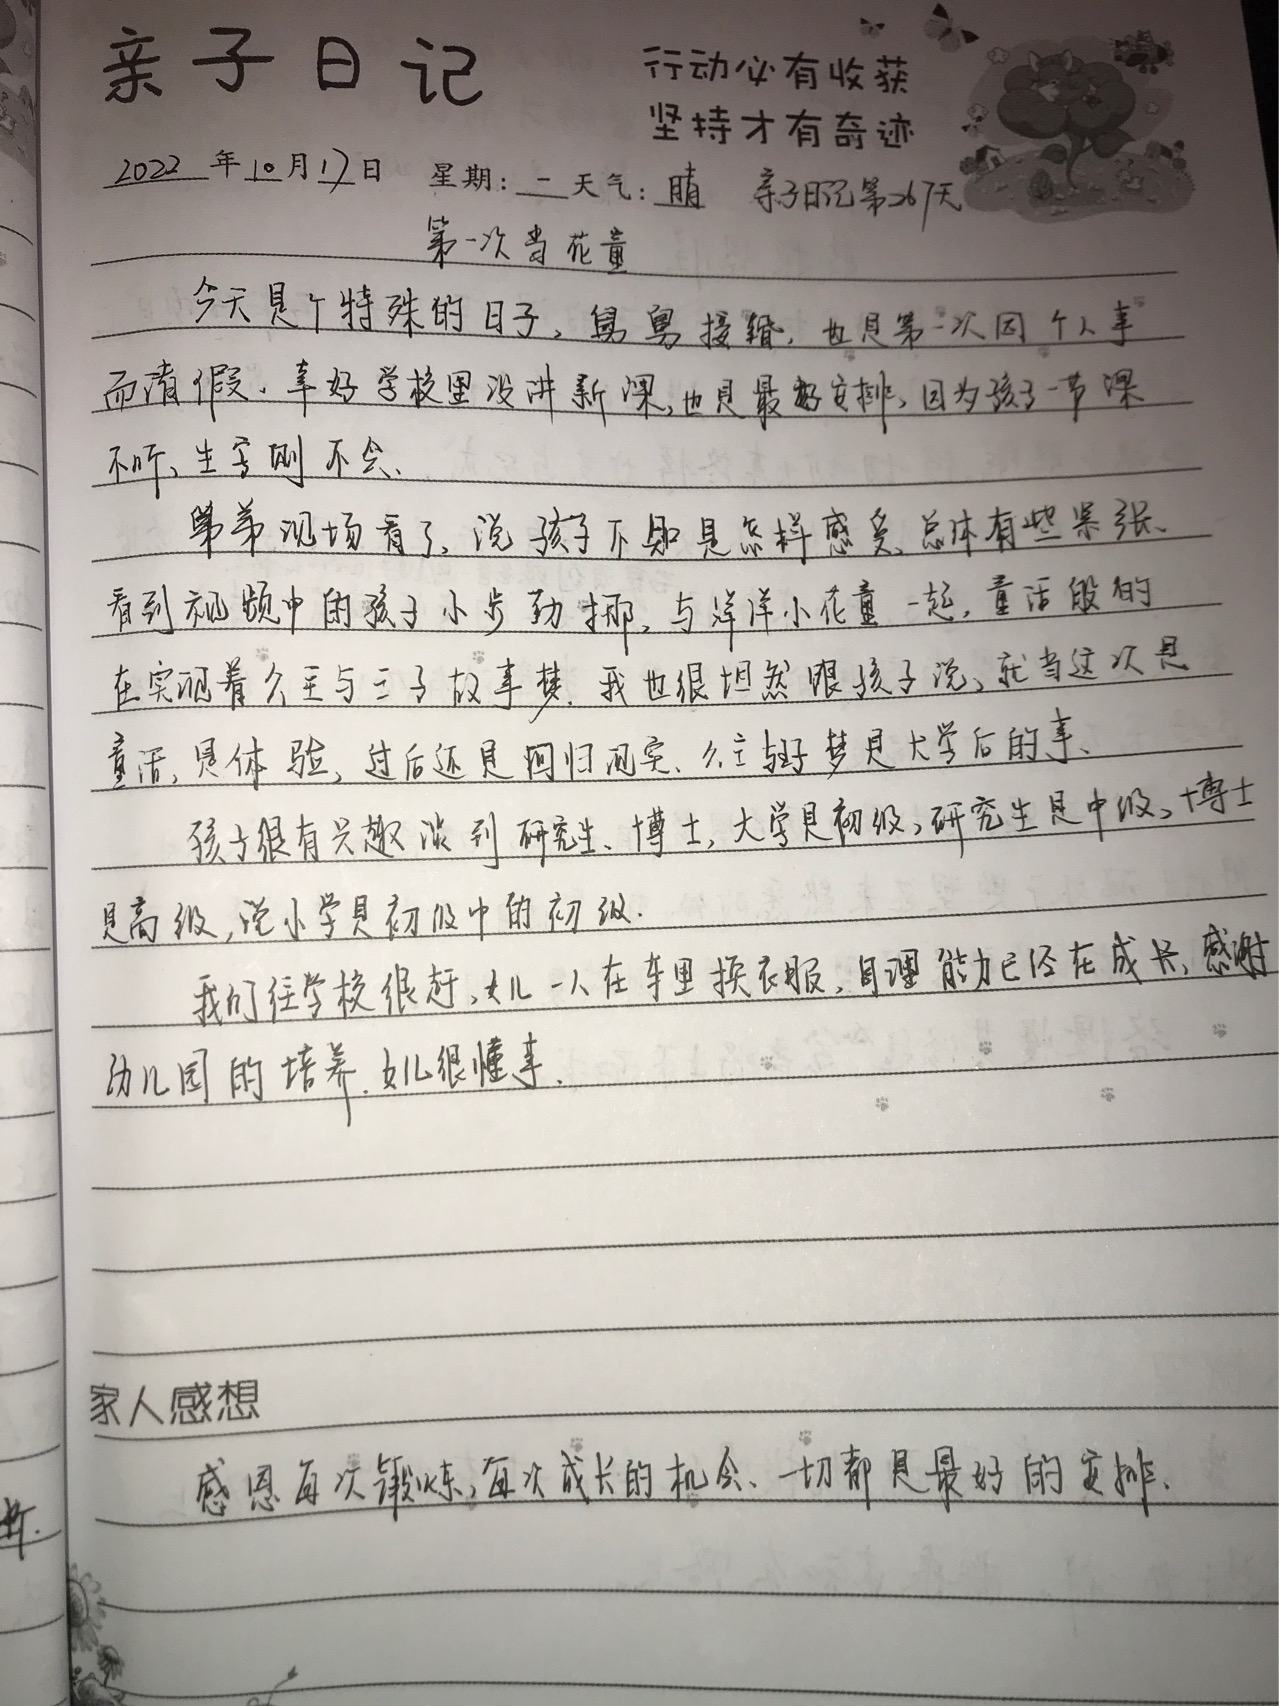 亲子日记
行动必有收获
坚持才有奇迹
2022年10月17日 星期:一 天气:晴 亲子日记第267天
第一次当花童
今天是个特殊的日子、舅舅接婚、也是第一次因个人事
而请假、幸好学校里没讲新课,也是最好安排、因为孩子一节课
不听、生字则不会、
弟弟现场看了、说孩子不知是怎样感受、总体有些紧张、
看到视频中的孩子小步勤挪、与洋洋小花童一起,童话般的
在实现着公主与王子故事梦.我也很坦然跟孩子说、就当这次是
童话,是体验,过后还是回归现实、公主与王子梦是大学后的事、
孩子很有兴趣谈到研究生、博士,大学是初级,研究生是中级、博士
是高级,说小学是初级中的初级.
我们往学校很赶、女儿一人在车里换衣服、自理能力已经在成长、感谢
幼儿园的培养.女儿很懂事、
家人感想
感恩每次锻炼,每次成长的机会、一切都是最好的安排、